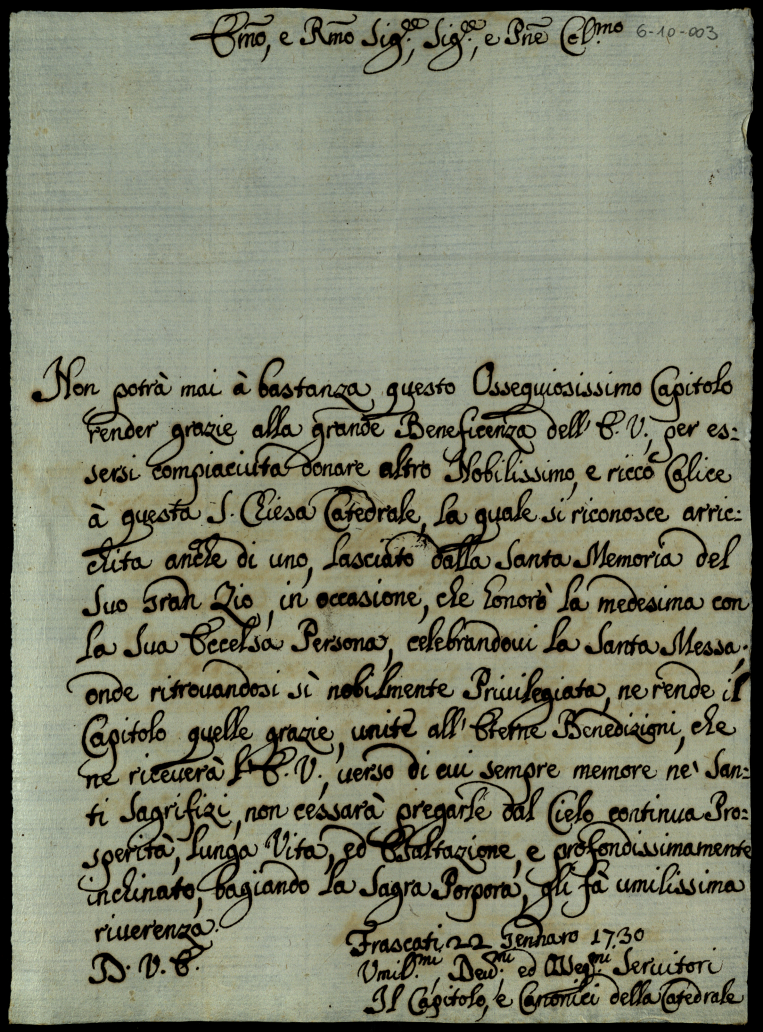 Emo, e Rmo Sig.re, Sig.re, e Pñe Col.mo 6-10-003
Non potrà mai à bastanza questo Ossequiosissimo Capitolo
render grazie alla grande Beneficenza dell' E. V., per es:
sersi compiaciuta donare altro Nobilissimo, e ricco Calice
à questa S. Chiesa Catedrale, la quale si riconosce arric:
chita anche di uno, lasciato dalla Santa Memoria del
Suo Gran Zio, in occasione, che honorò la medesima con
la Sua Eccelsa Persona, celebrandovi la Santa Messa.
onde ritrovandosi sì nobilmente Privilegiata, ne rende il
Capitolo quelle grazie, unite all' Eterne Benedizioni, che
ne riceverà l' E. V., verso di cui sempre memore ne' San:
ti Sagrifizi, non cessarà pregarle dal Cielo continua Pro:
sperità, lunga Vita, ed Esaltazione, e profondissimamente
inchinato, bagiando la Sagra Porpora, gli fà umilissima
riverenza.
Frascati 22 Gennaro 1730
D. V. E.
Umil.mi Dev.mi ed Osseq.mi Servitori
Il Capitolo, e Canonici della Catedrale